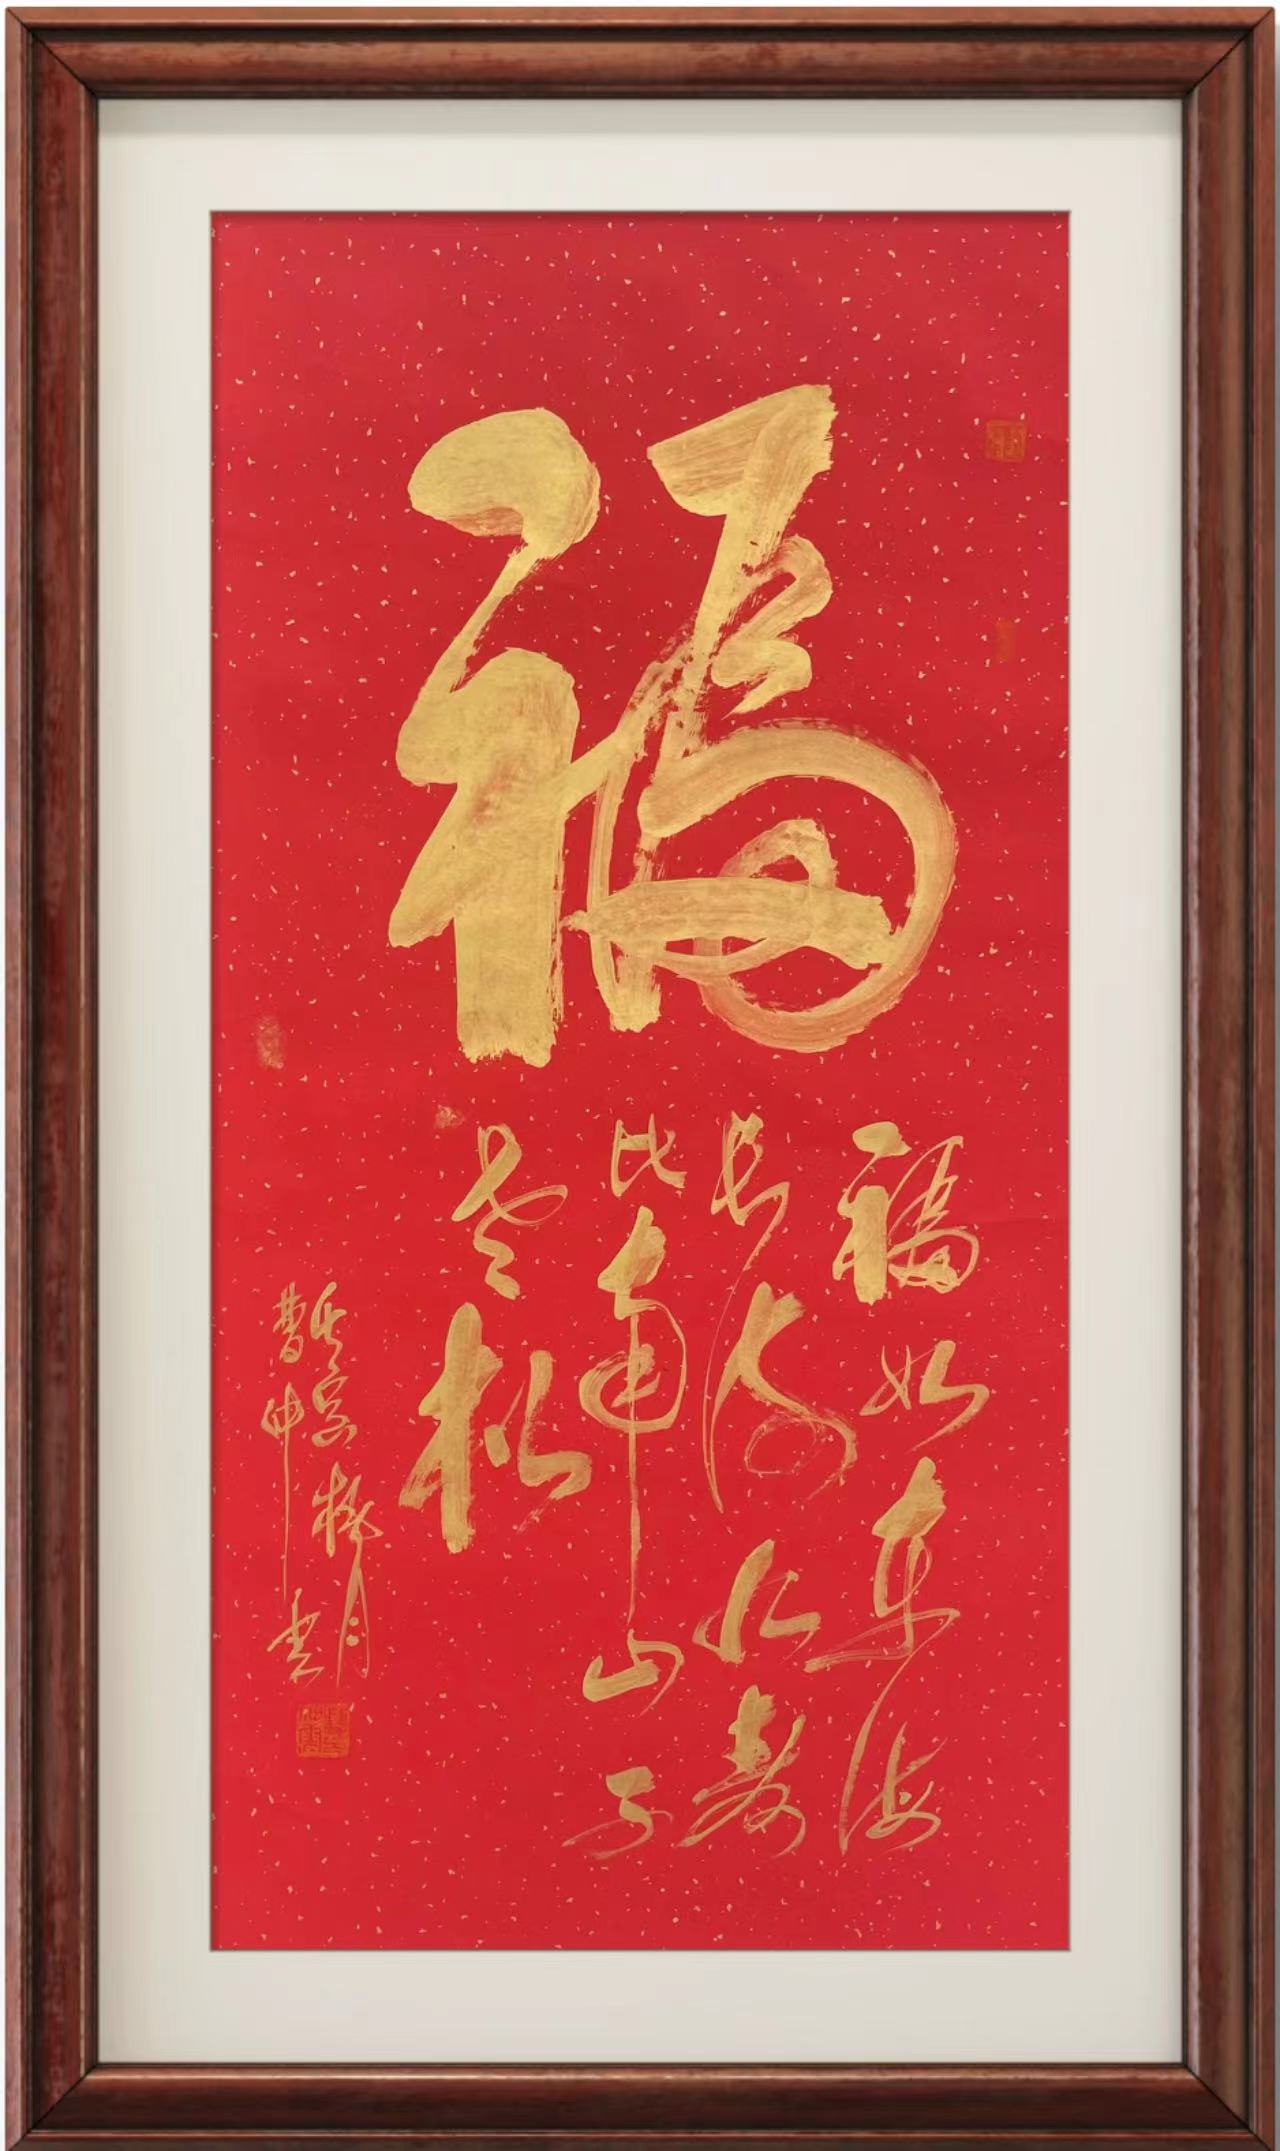 福
福如东海
长流水寿
比南山不
老松
曹仲云